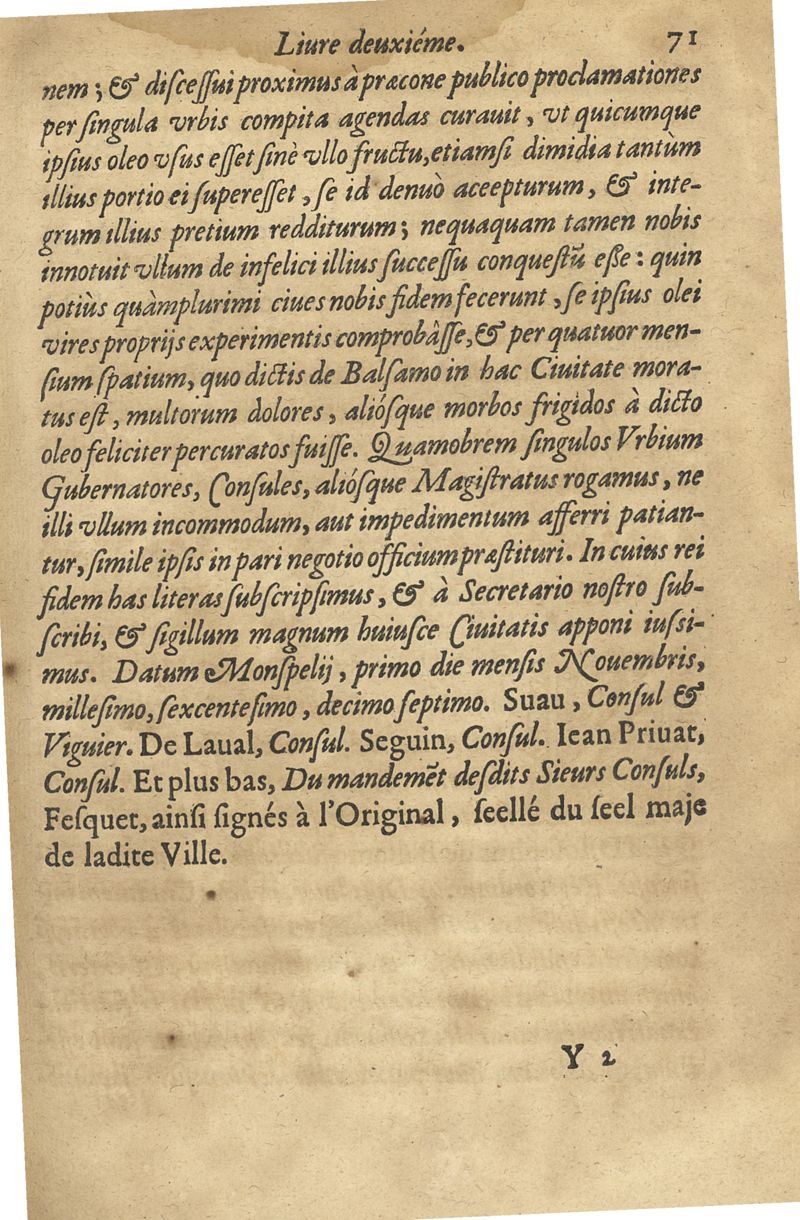 Liure deuxiéme. 71
nem ; & diſceſſui proximus à præcone publico proclamationes
per ſingula vrbis compita agendas curauit , vt quicumque
ipſius oleo vſus eſſet ſinè vllo fructu, etiamſi dimidia tantùm
illius portio ei ſupereſſet , ſe id denuò aceepturum , & inte-
grum illius pretium redditurum ; nequaquam tamen nobis
innotuit vllum de infelici illius ſucceſſu conqueſtũ eße : quin
potiùs quàmplurimi ciues nobis fidem fecerunt , ſe ipſius olei
vires proprijs experimentis comprobâſſe, & per quatuor men-
ſium ſpatium, quo dictis de Balſamo in hac Ciuitate mora-
tus eſt , multorum dolores , alióſque morbos frigidos à dicto
oleo feliciter percuratos fuiſſe. Quamobrem ſingulos Vrbium
Gubernatores, Conſules, alióſque Magiſtratus rogamus , ne
illi vllum incommodum, aut impedimentum afferri patian-
tur, ſimile ipſis in pari negotio officium præſtituri. In cuius rei
fidem has literas ſubſcripſimus , & à Secretario noſtro ſub-
ſcribi, & ſigillum magnum huiuſce Ciuitatis apponi iuſſi-
mus. Datum Monſpelij , primo die menſis Nouembris,
milleſimo, ſexcenteſimo , decimo ſeptimo. Suau , Conſul &
Viguier. De Laual, Conſul. Seguin, Conſul. Iean Priuat,
Conſul. Et plus bas, Du mandemẽt deſdits Sieurs Conſuls,
Feſquet, ainſi ſignés à l'Original , ſeellé du ſeel maje
de ladite Ville.
Y 2